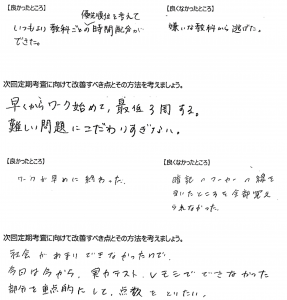 【良かったところ】
優先順位を考えて
いつもより教科ごとの時間配分が
できた。
【良くなかったところ】
嫌いな教科から逃げた。
次回定期考査に向けて改善すべき点とその方法を考えましょう。
早くからワーク始めて、最低3周する。
難しい問題にこだわりすぎない。
【良かったところ】
ワークが早めに終わった。
【良くなかったところ】
暗記マーカーの線を
引いたところを全部覚え
られなかった。
次回定期考査に向けて改善すべき点とその方法を考えましょう。
社会があまりできなかったので、
今回は今から、実力テスト、Vモシでできなかった
部分を重点的にして、点数をとりたい。